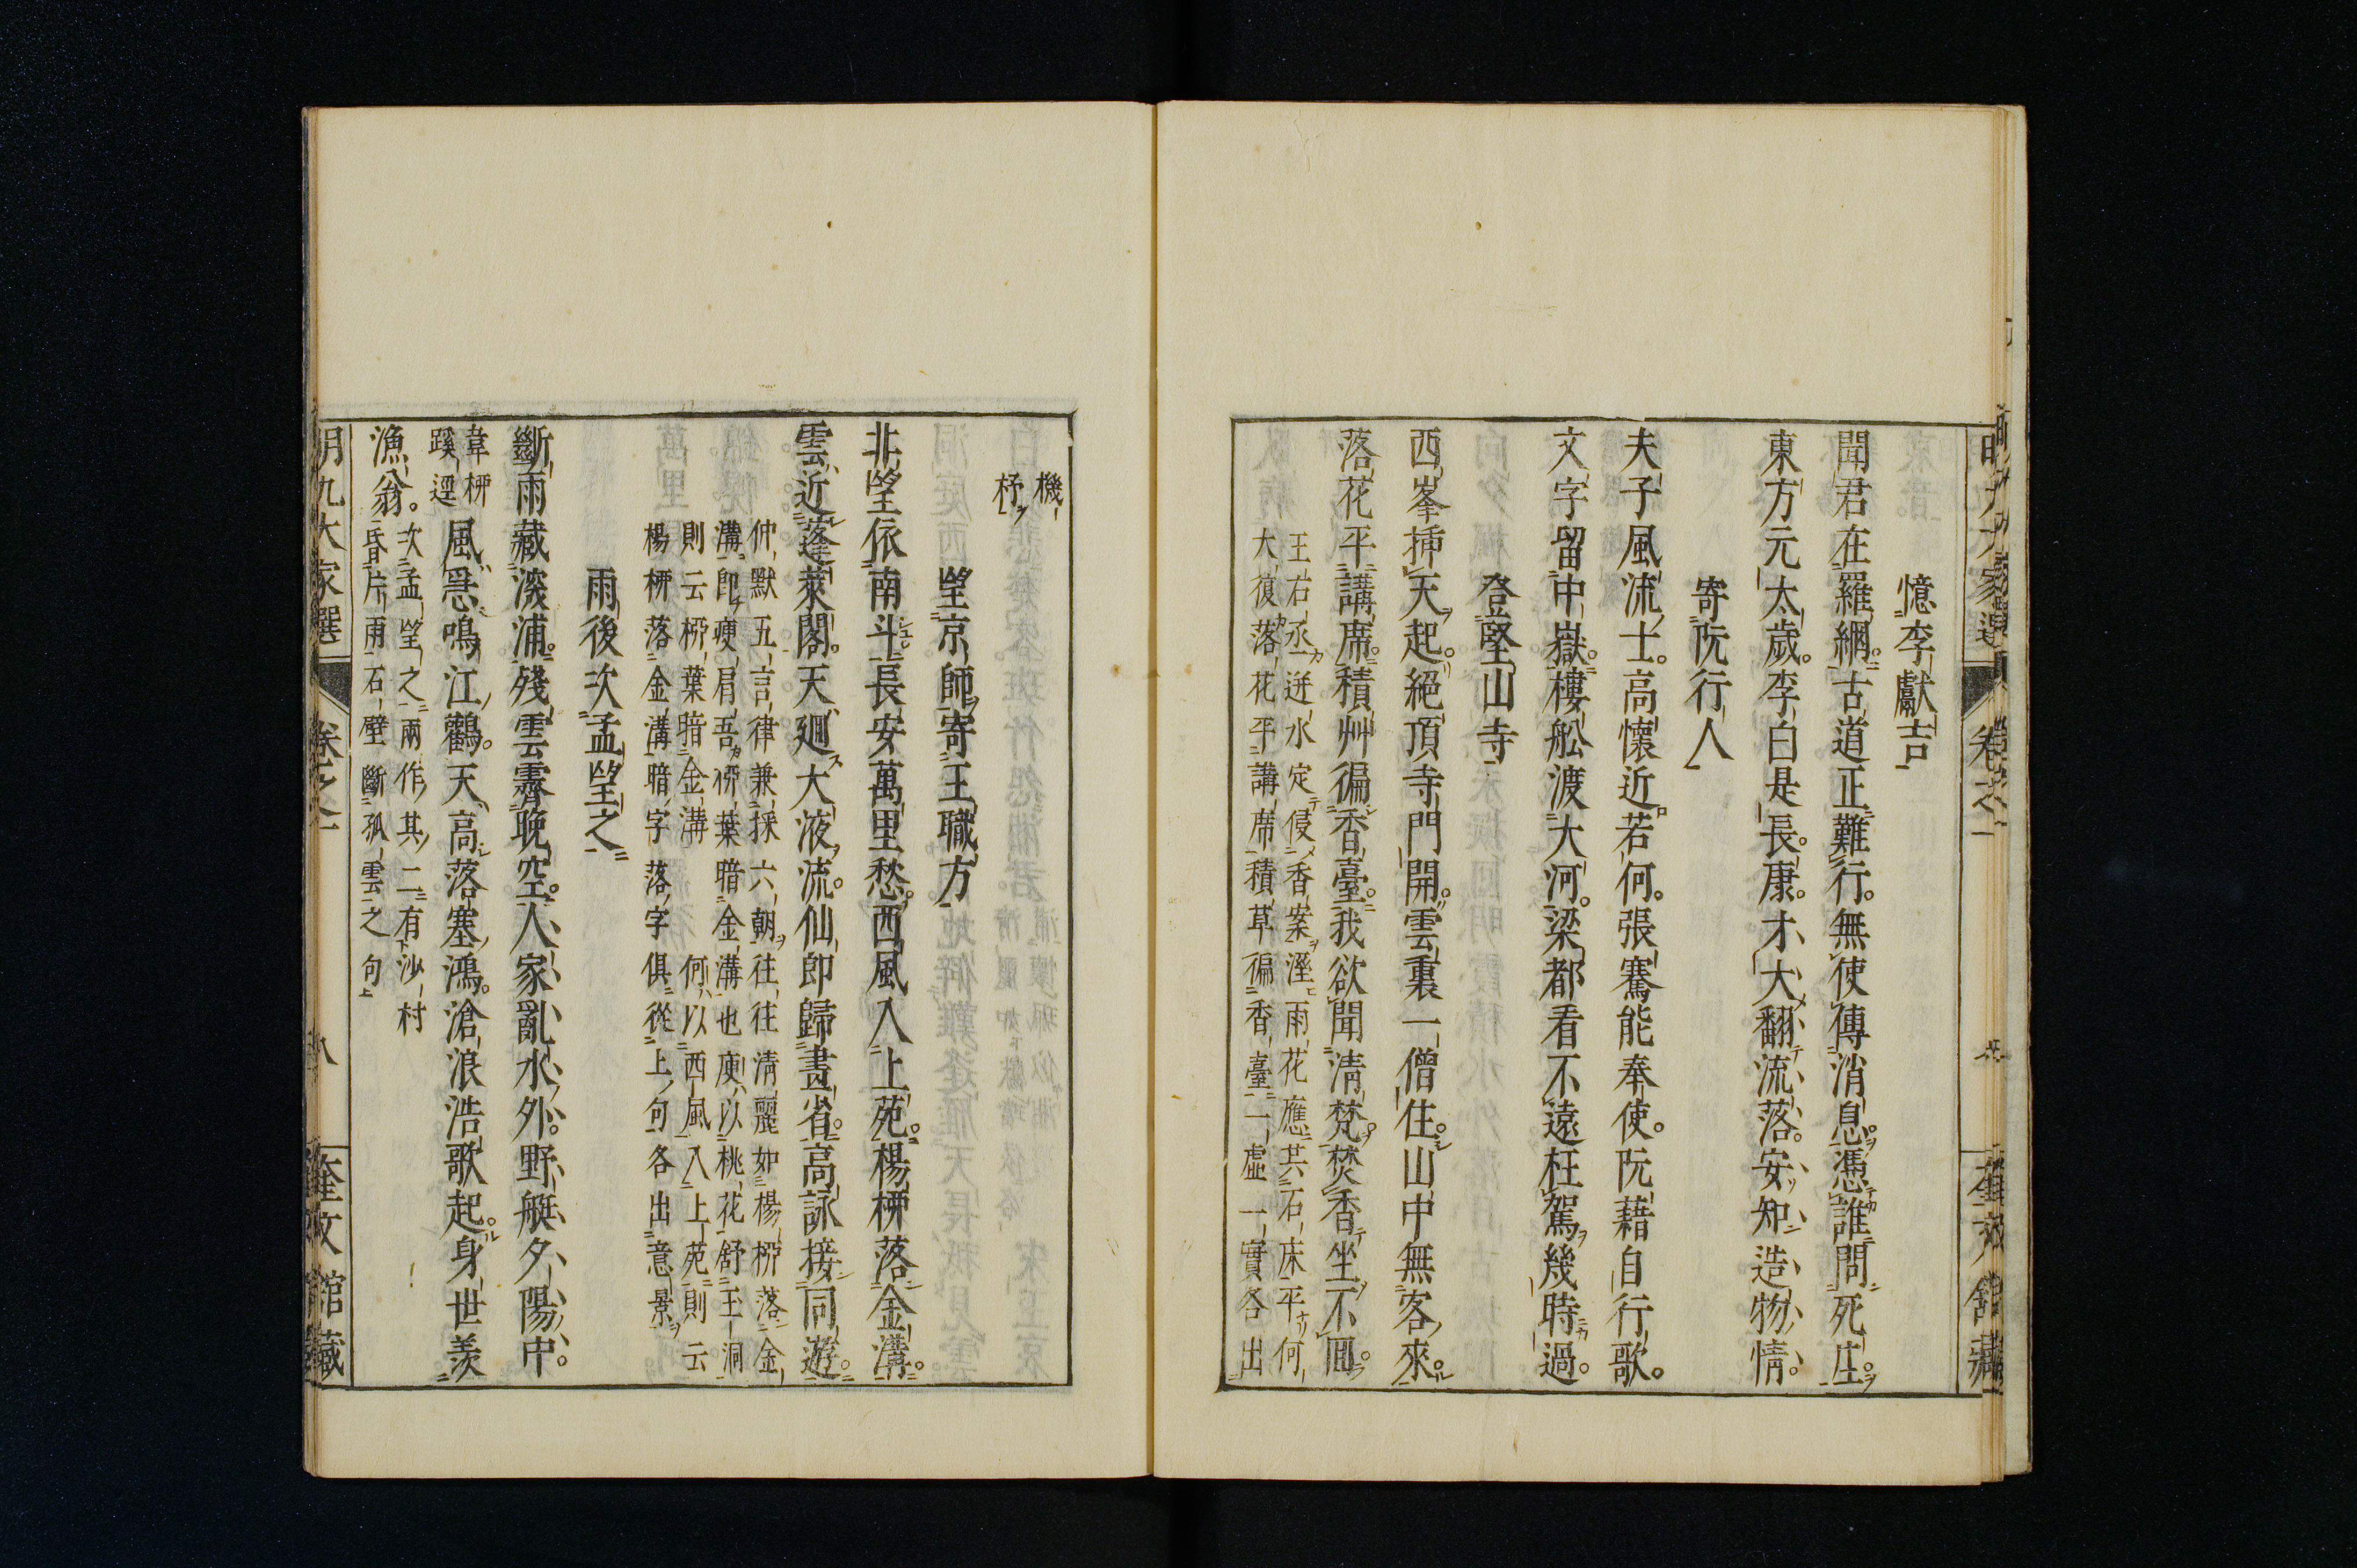 憶李獻吉
聞君在羅網。古道正難行。無使傳消息。憑誰問死生。
東方元太歲。李白是長康。才大翻流落。安知造物情。
寄阮行人
夫子風流士。高懷近若何。張騫能奉使。阮藉自行歌。
文字留中嶽。樓舩渡大河。梁都看不遠枉駕幾時過。
登堅山寺
西峯挿天起。絕頂寺門開。雲裏一僧住。山中無客來。
落花平講席。積艸徧香臺。我欲聞清梵。焚香坐不囘。
王右丞迸水定侵香案溼雨花應共石床平何
大復落花平講席積草徧香臺一虛一實各出
機
杼
望京師寄王職方
北望依南斗。長安萬里愁。西風入上苑。楊栁落金溝。
雲近蓬萊閣。天廻大液流。仙郎歸畫省。高詠接同遊。
仲默五言律兼採六朝往往淸麗如楊栁落金
溝。卽庾肩吾栁葉暗金溝也庾以桃花舒玉洞
則云栁葉暗金溝何以西風入上苑則云
楊栁落金溝暗字落字俱從上句各出意景
雨後次孟望之
斷雨藏深浦。殘雲霽晚空。人家亂水外。野艇夕陽中。
韋栁
蹊逕
風急鳴江鸛。天高落塞鴻。滄浪浩歌起。身世羨
漁翁。
次孟望之兩作其二有沙村
昏片雨石壁斷孤雲之句
明九大家選
卷之一
八
奎文館藏